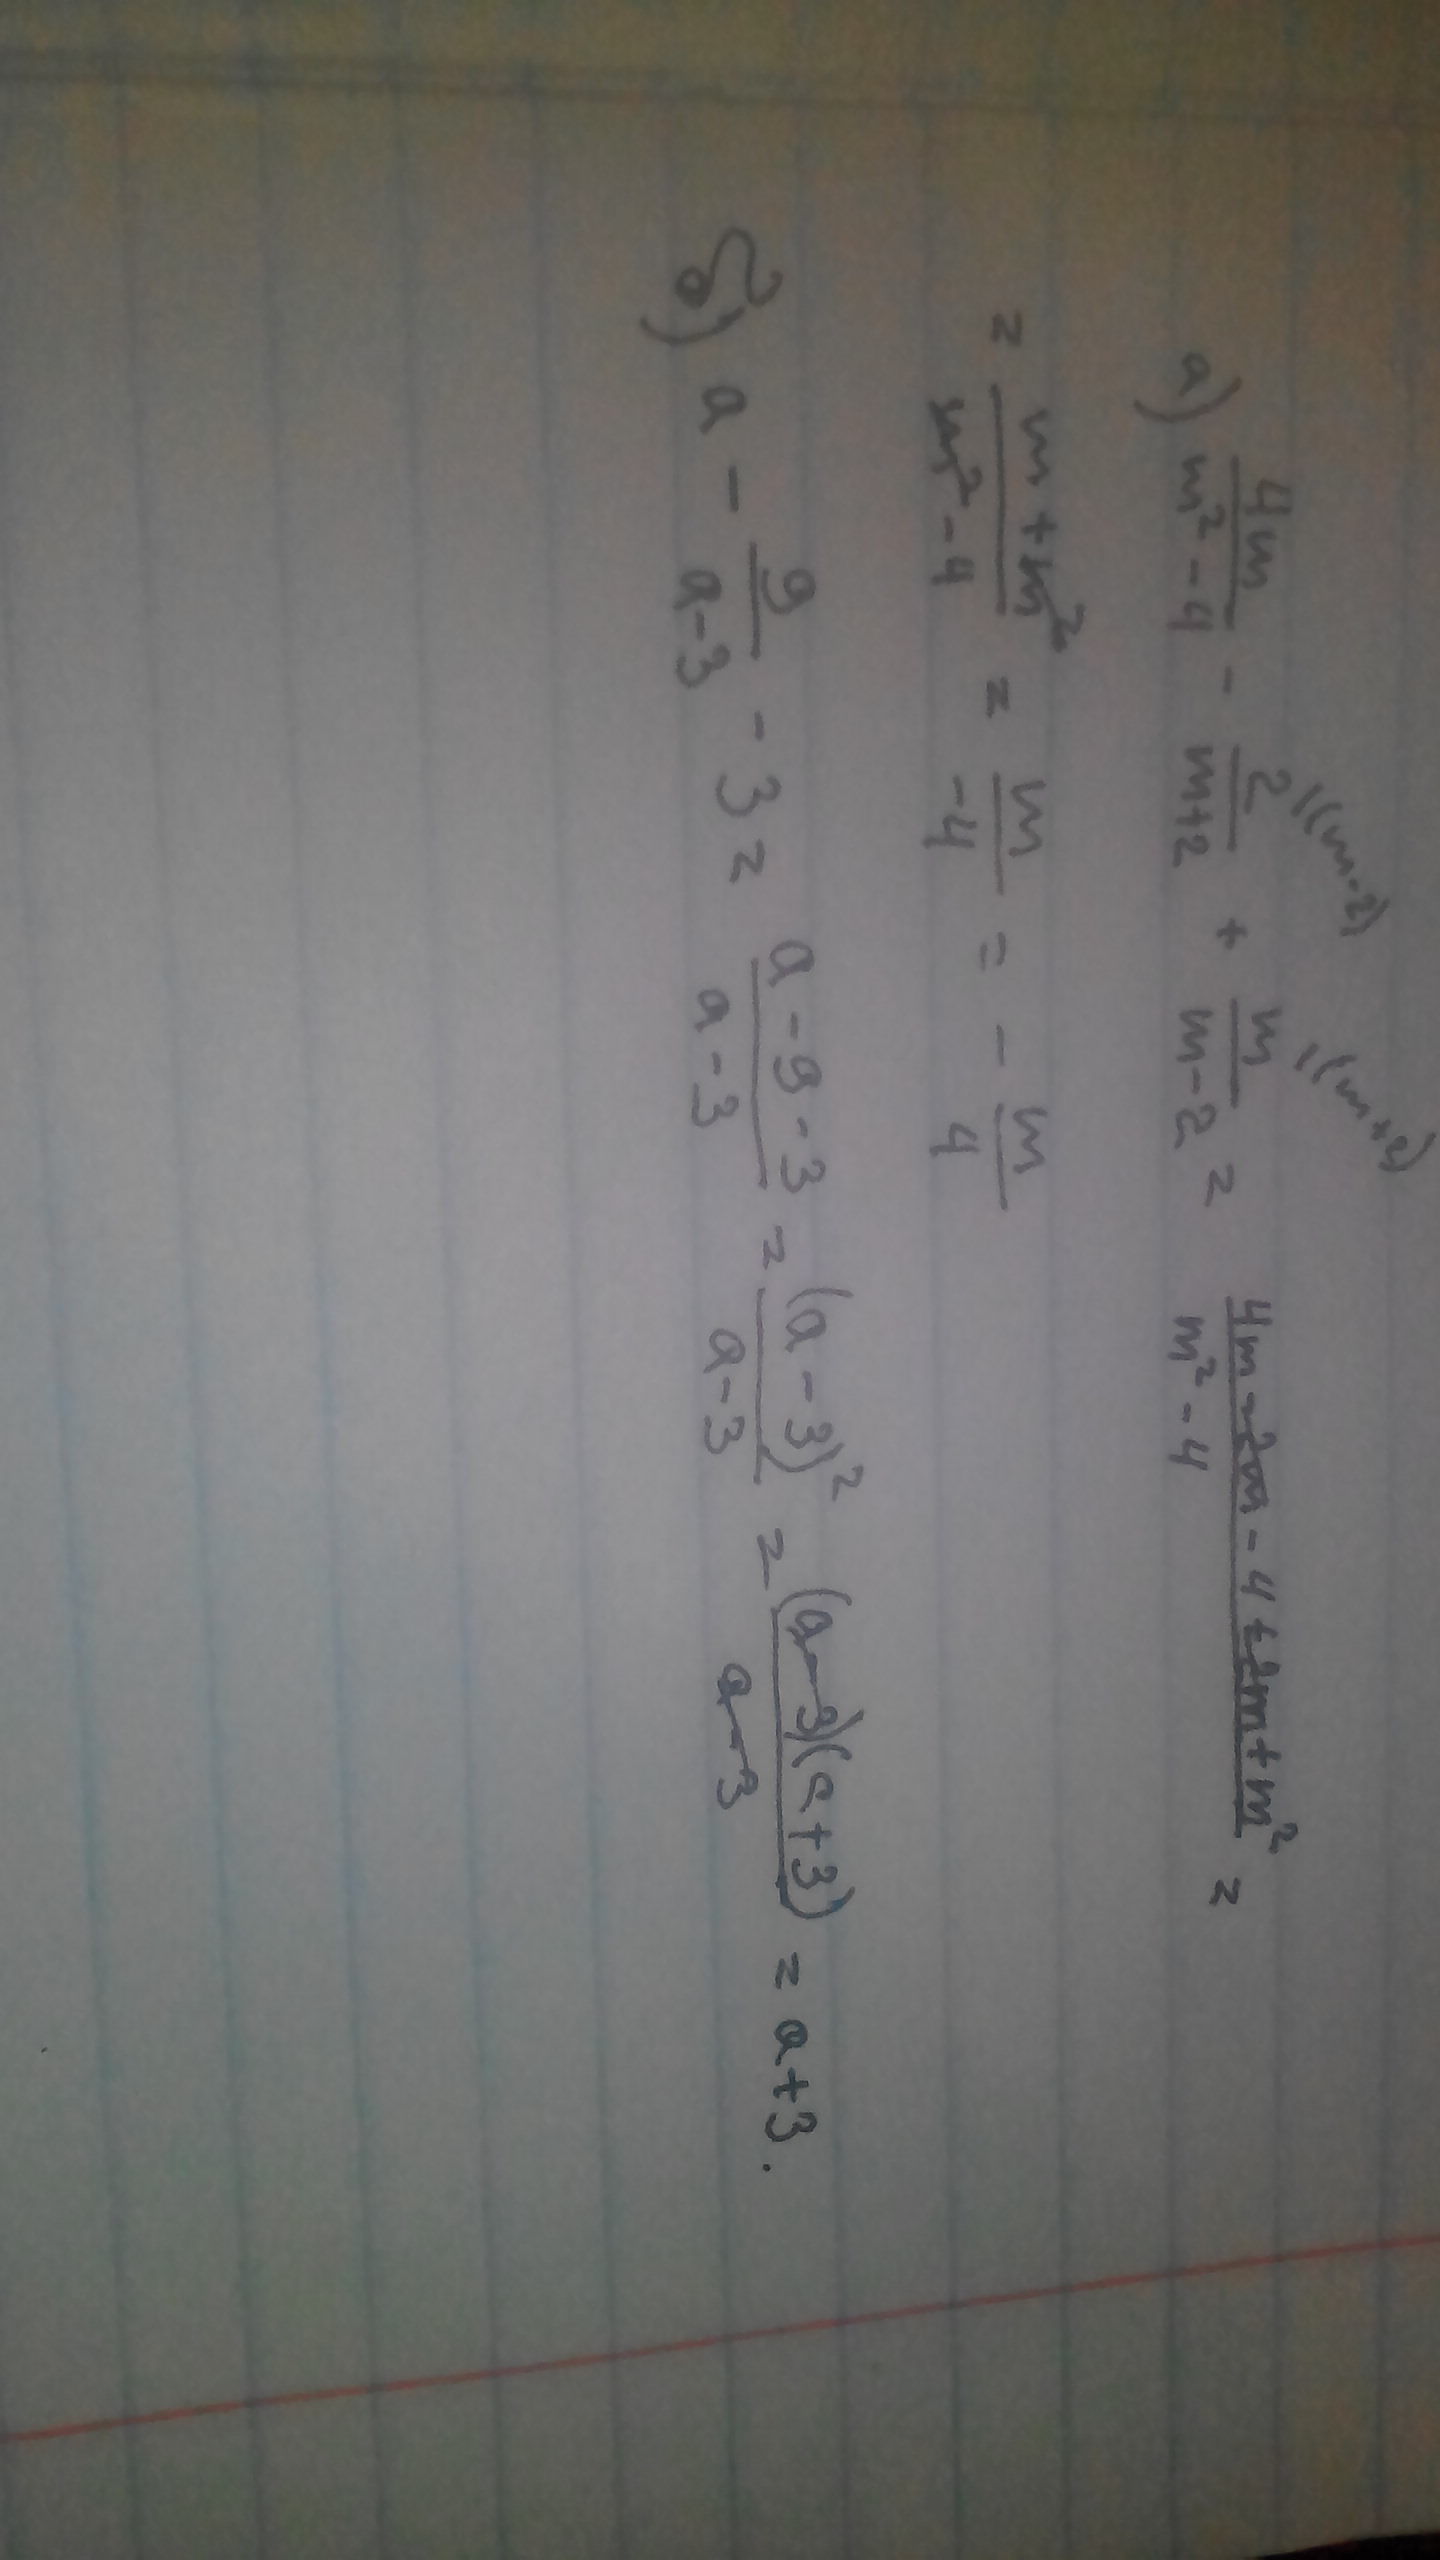 а) 4m/(m² - 4) - 2/(m+2) \(m-2) + m/(m-2) \(m+2) = (4m - 2m - 4 + 2m + m²)/(m² - 4) =
= (m + m²)/(m² - 4) = m/-4 = - m/4
б) a - 9/(a-3) - 3 = (a - 9 - 3)/(a - 3) = (a - 3)²/(a - 3) = (a-3)(a+3)/(a-3) = a+3.